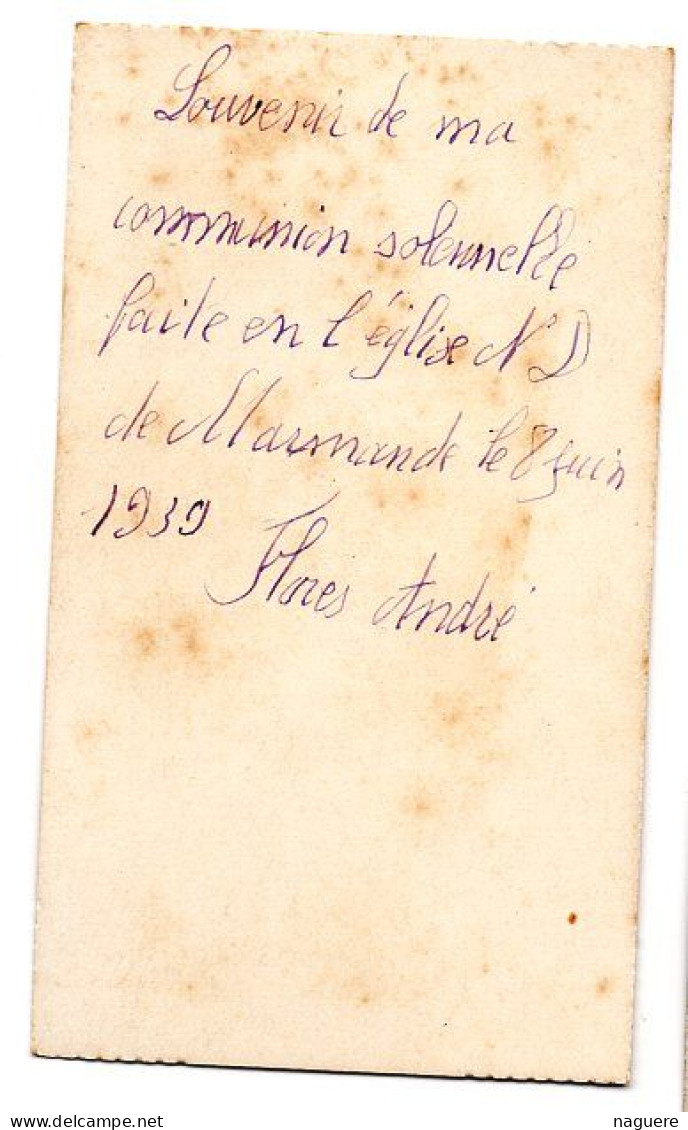 Souvenir de ma
communion solennelle
faite en l'église N D
de Marmande le 8 juin
1939
Flores André
naguere